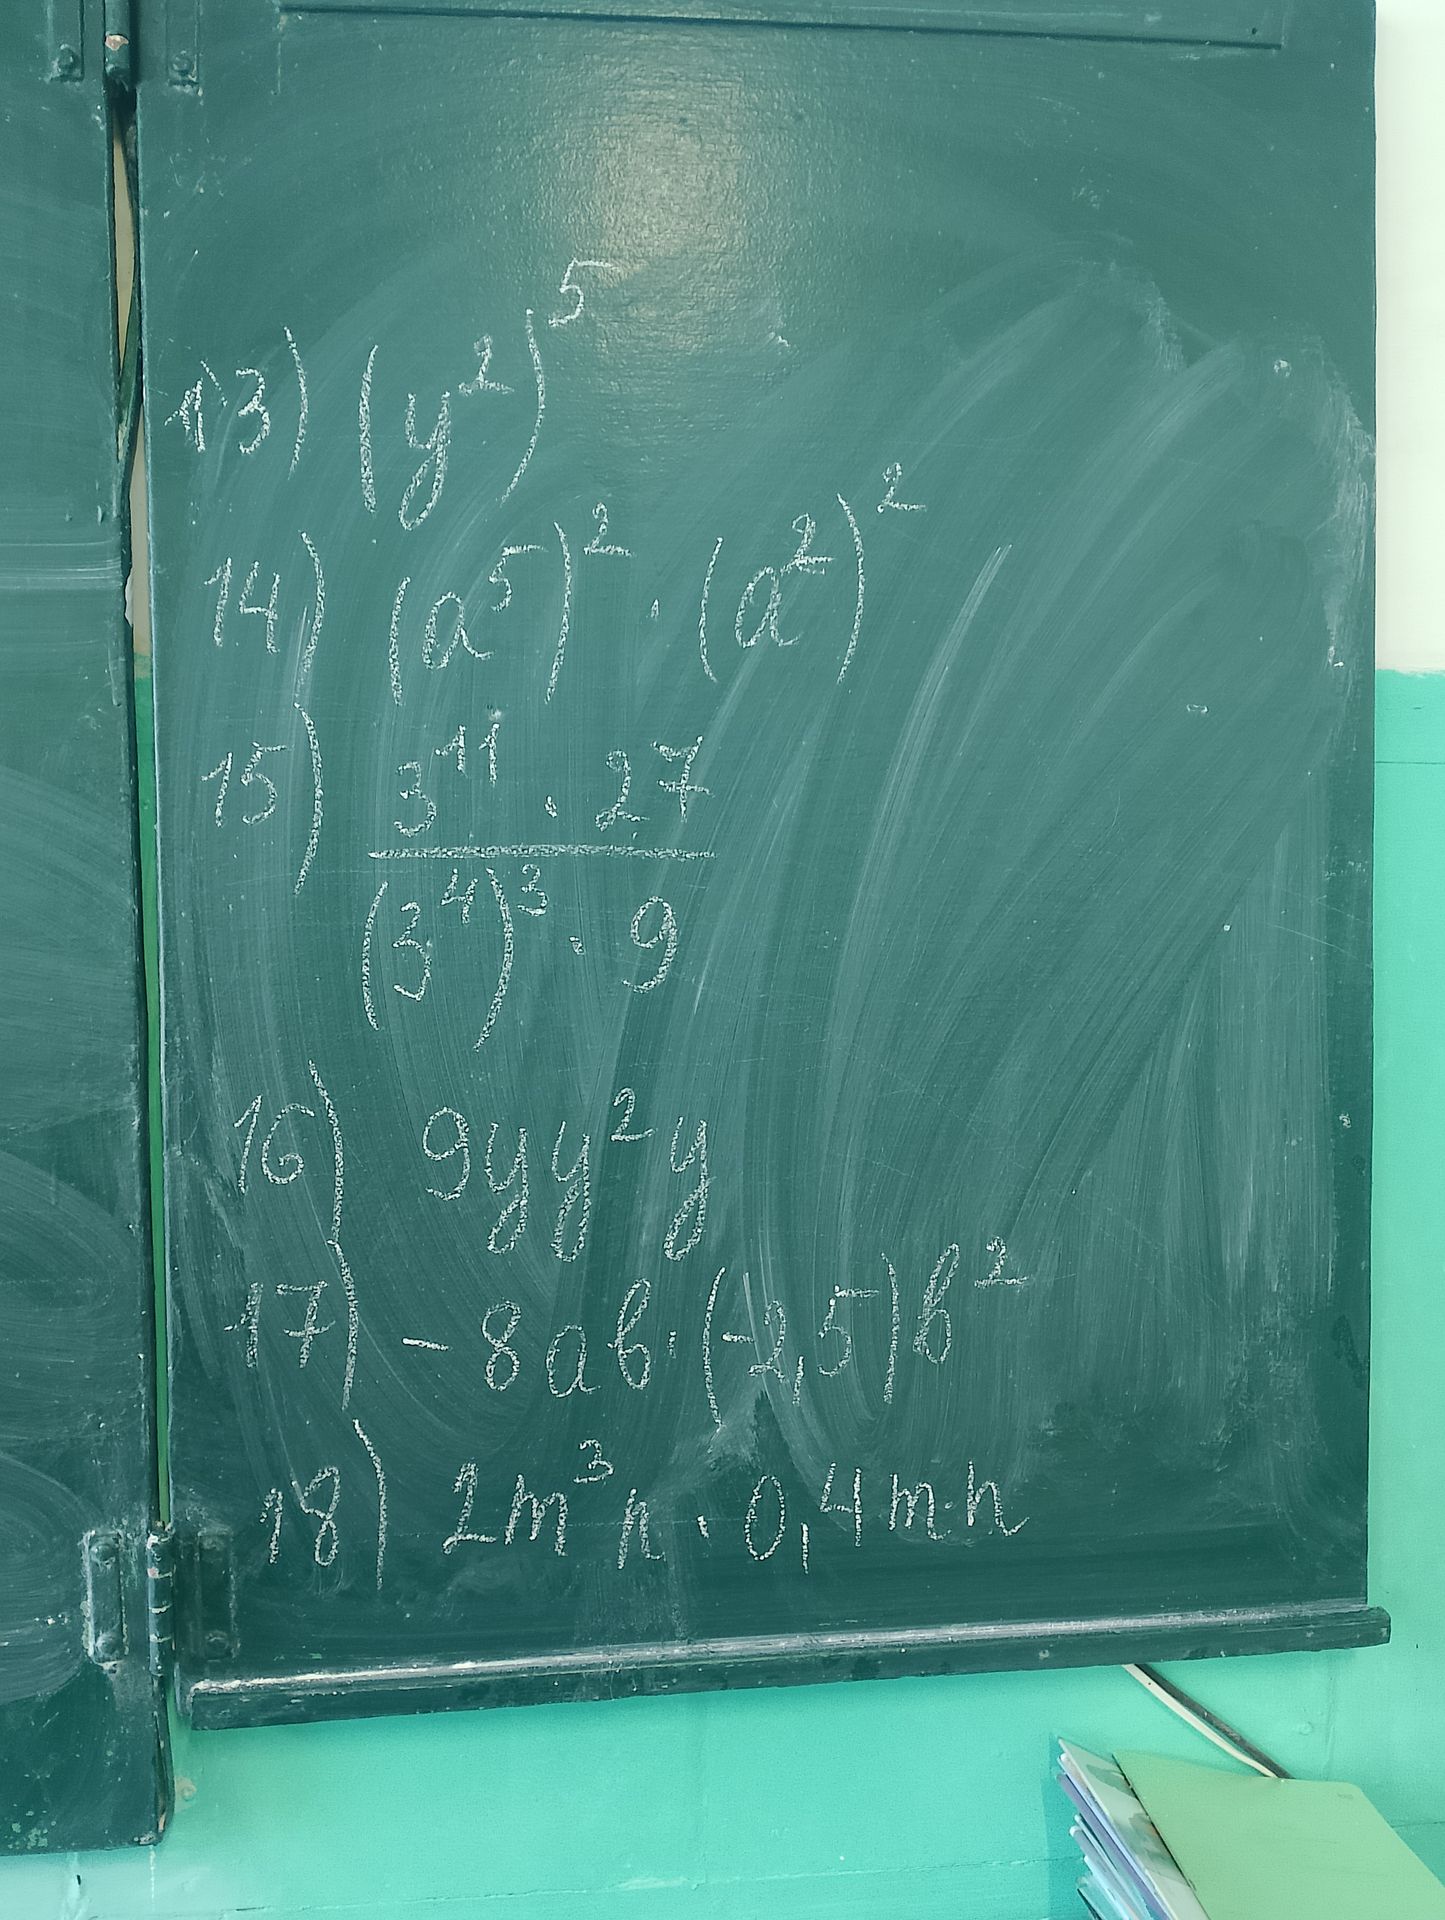 13) (y²)⁵
14) (a⁵)² · (a²)²
15) 3¹¹ · 27
(3⁴)³ · 9
16) 9yy²y
17) -8ab·(-2,5)b²
18) 2m³n · 0,4m·n